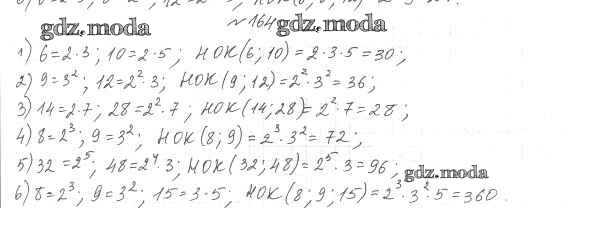 gdz.moda
№ 164
gdz.moda
1) 6=2·3; 10=2·5; НОК(6; 10) = 2·3·5=30;
2) 9=3²; 12=2²·3; НОК(9; 12)=2²·3²=36;
3) 14=2·7; 28=2²·7; НОК(14; 28)=2²·7=28;
4) 8=2³; 9=3²; НОК(8; 9)=2³·3²=72;
5) 32=2⁵; 48=2⁴·3; НОК(32; 48)=2⁵·3=96;
gdz.moda
6) 8=2³; 9=3²; 15=3·5; НОК(8; 9; 15)=2³·3²·5=360.